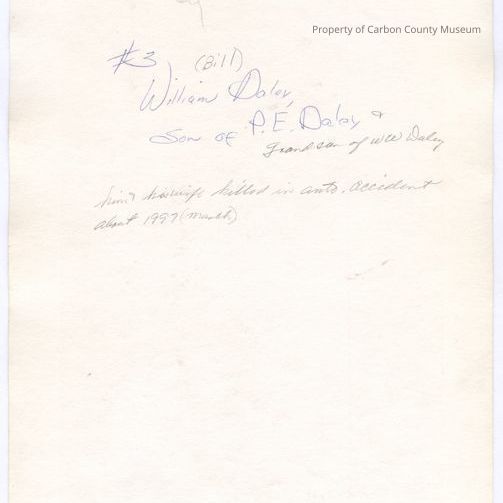 Property of Carbon County Museum
#3 (Bill)
William Daley
Son of P.E. Daley &
Grandson of WW Daley
him & his wife killed in auto. accident
about 1997 (March)